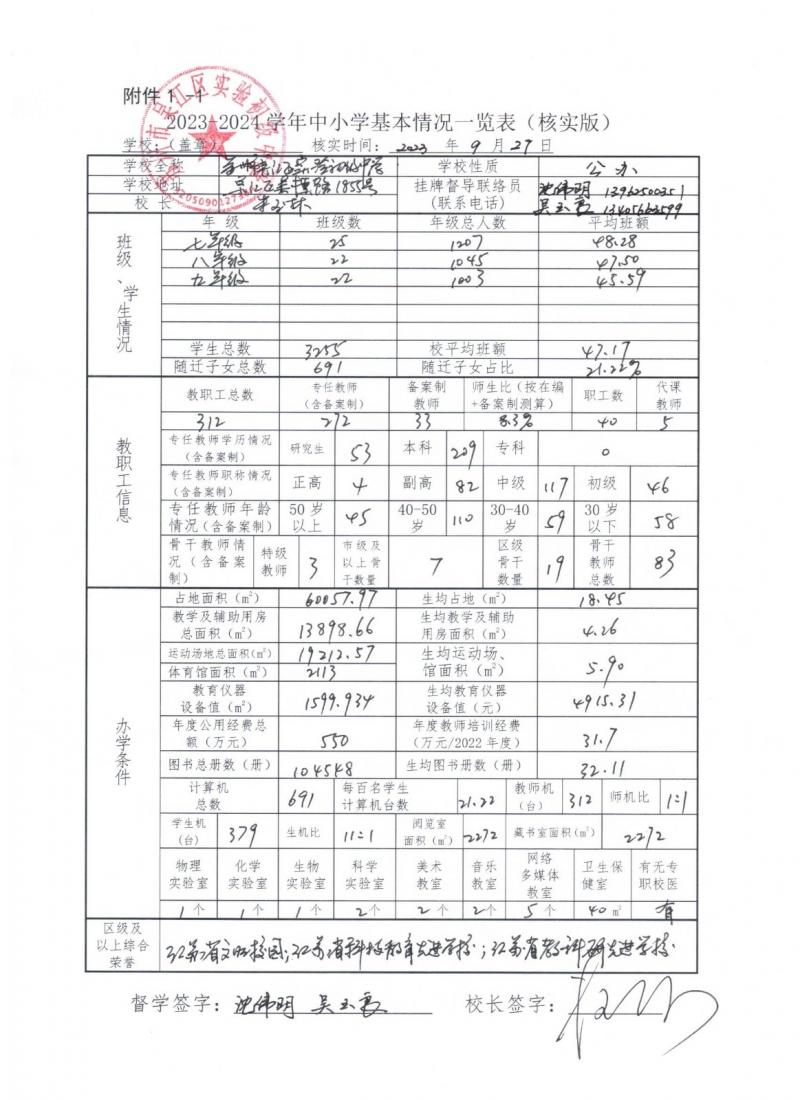 附件 1 -1
2023-2024 学年中小学基本情况一览表（核实版）
学校：（盖章） 核实时间：2023 年 9 月 27 日
学校全称 学校性质 公办
学校地址 挂牌督导联络员 沈伟明 13962500351
校长 (联系电话) 13405662599
班级、学生情况
年 级 班级数 年级总人数 平均班额
七年级 25 1207 48.28
八年级 22 1045 47.50
九年级 22 1003 45.59
学生总数 3255 校平均班额 47.17
随迁子女总数 691 随迁子女占比 21.22%
教职工信息
教职工总数 专任教师（含备案制） 备案制教师 师生比（按在编+备案制测算） 职工数 代课教师
312 272 33 8.3% 40 5
专任教师学历情况（含备案制） 研究生 53 本科 209 专科 0
专任教师职称情况（含备案制） 正高 4 副高 82 中级 117 初级 46
专任教师年龄情况（含备案制） 50 岁以上 45 40-50 岁 110 30-40 岁 59 30 岁以下 58
骨干教师情况（含备案制） 特级教师 3 市级及以上骨干数量 7 区级骨干数量 19 骨干教师总数 83
办学条件
占地面积（㎡） 60057.97 生均占地（㎡） 18.45
教学及辅助用房总面积（㎡） 13898.66 生均教学及辅助用房面积（㎡） 4.26
运动场地总面积(㎡) 19212.57 生均运动场、馆面积（㎡） 5.90
体育馆面积（㎡） 2113
教育仪器设备值（㎡） 1599.934 生均教育仪器设备值（元） 4915.31
年度公用经费总额（万元） 550 年度教师培训经费（万元/2022 年度） 31.7
图书总册数（册） 104548 生均图书册数（册） 32.11
计算机总数 691 每百名学生计算机台数 21.22 教师机（台） 312 师机比 1:1
学生机（台） 379 生机比 11:1 阅览室面积（㎡） 2272 藏书室面积(㎡) 2272
物理实验室 化学实验室 生物实验室 科学实验室 美术教室 音乐教室 网络多媒体教室 卫生保健室 有无专职校医
1个 1个 1个 2个 2个 2个 5个 40㎡ 有
区级及以上综合荣誉 江苏省文明校园；江苏省科技教育先进学校；江苏省教科研先进学校
督学签字：沈伟明 校长签字：